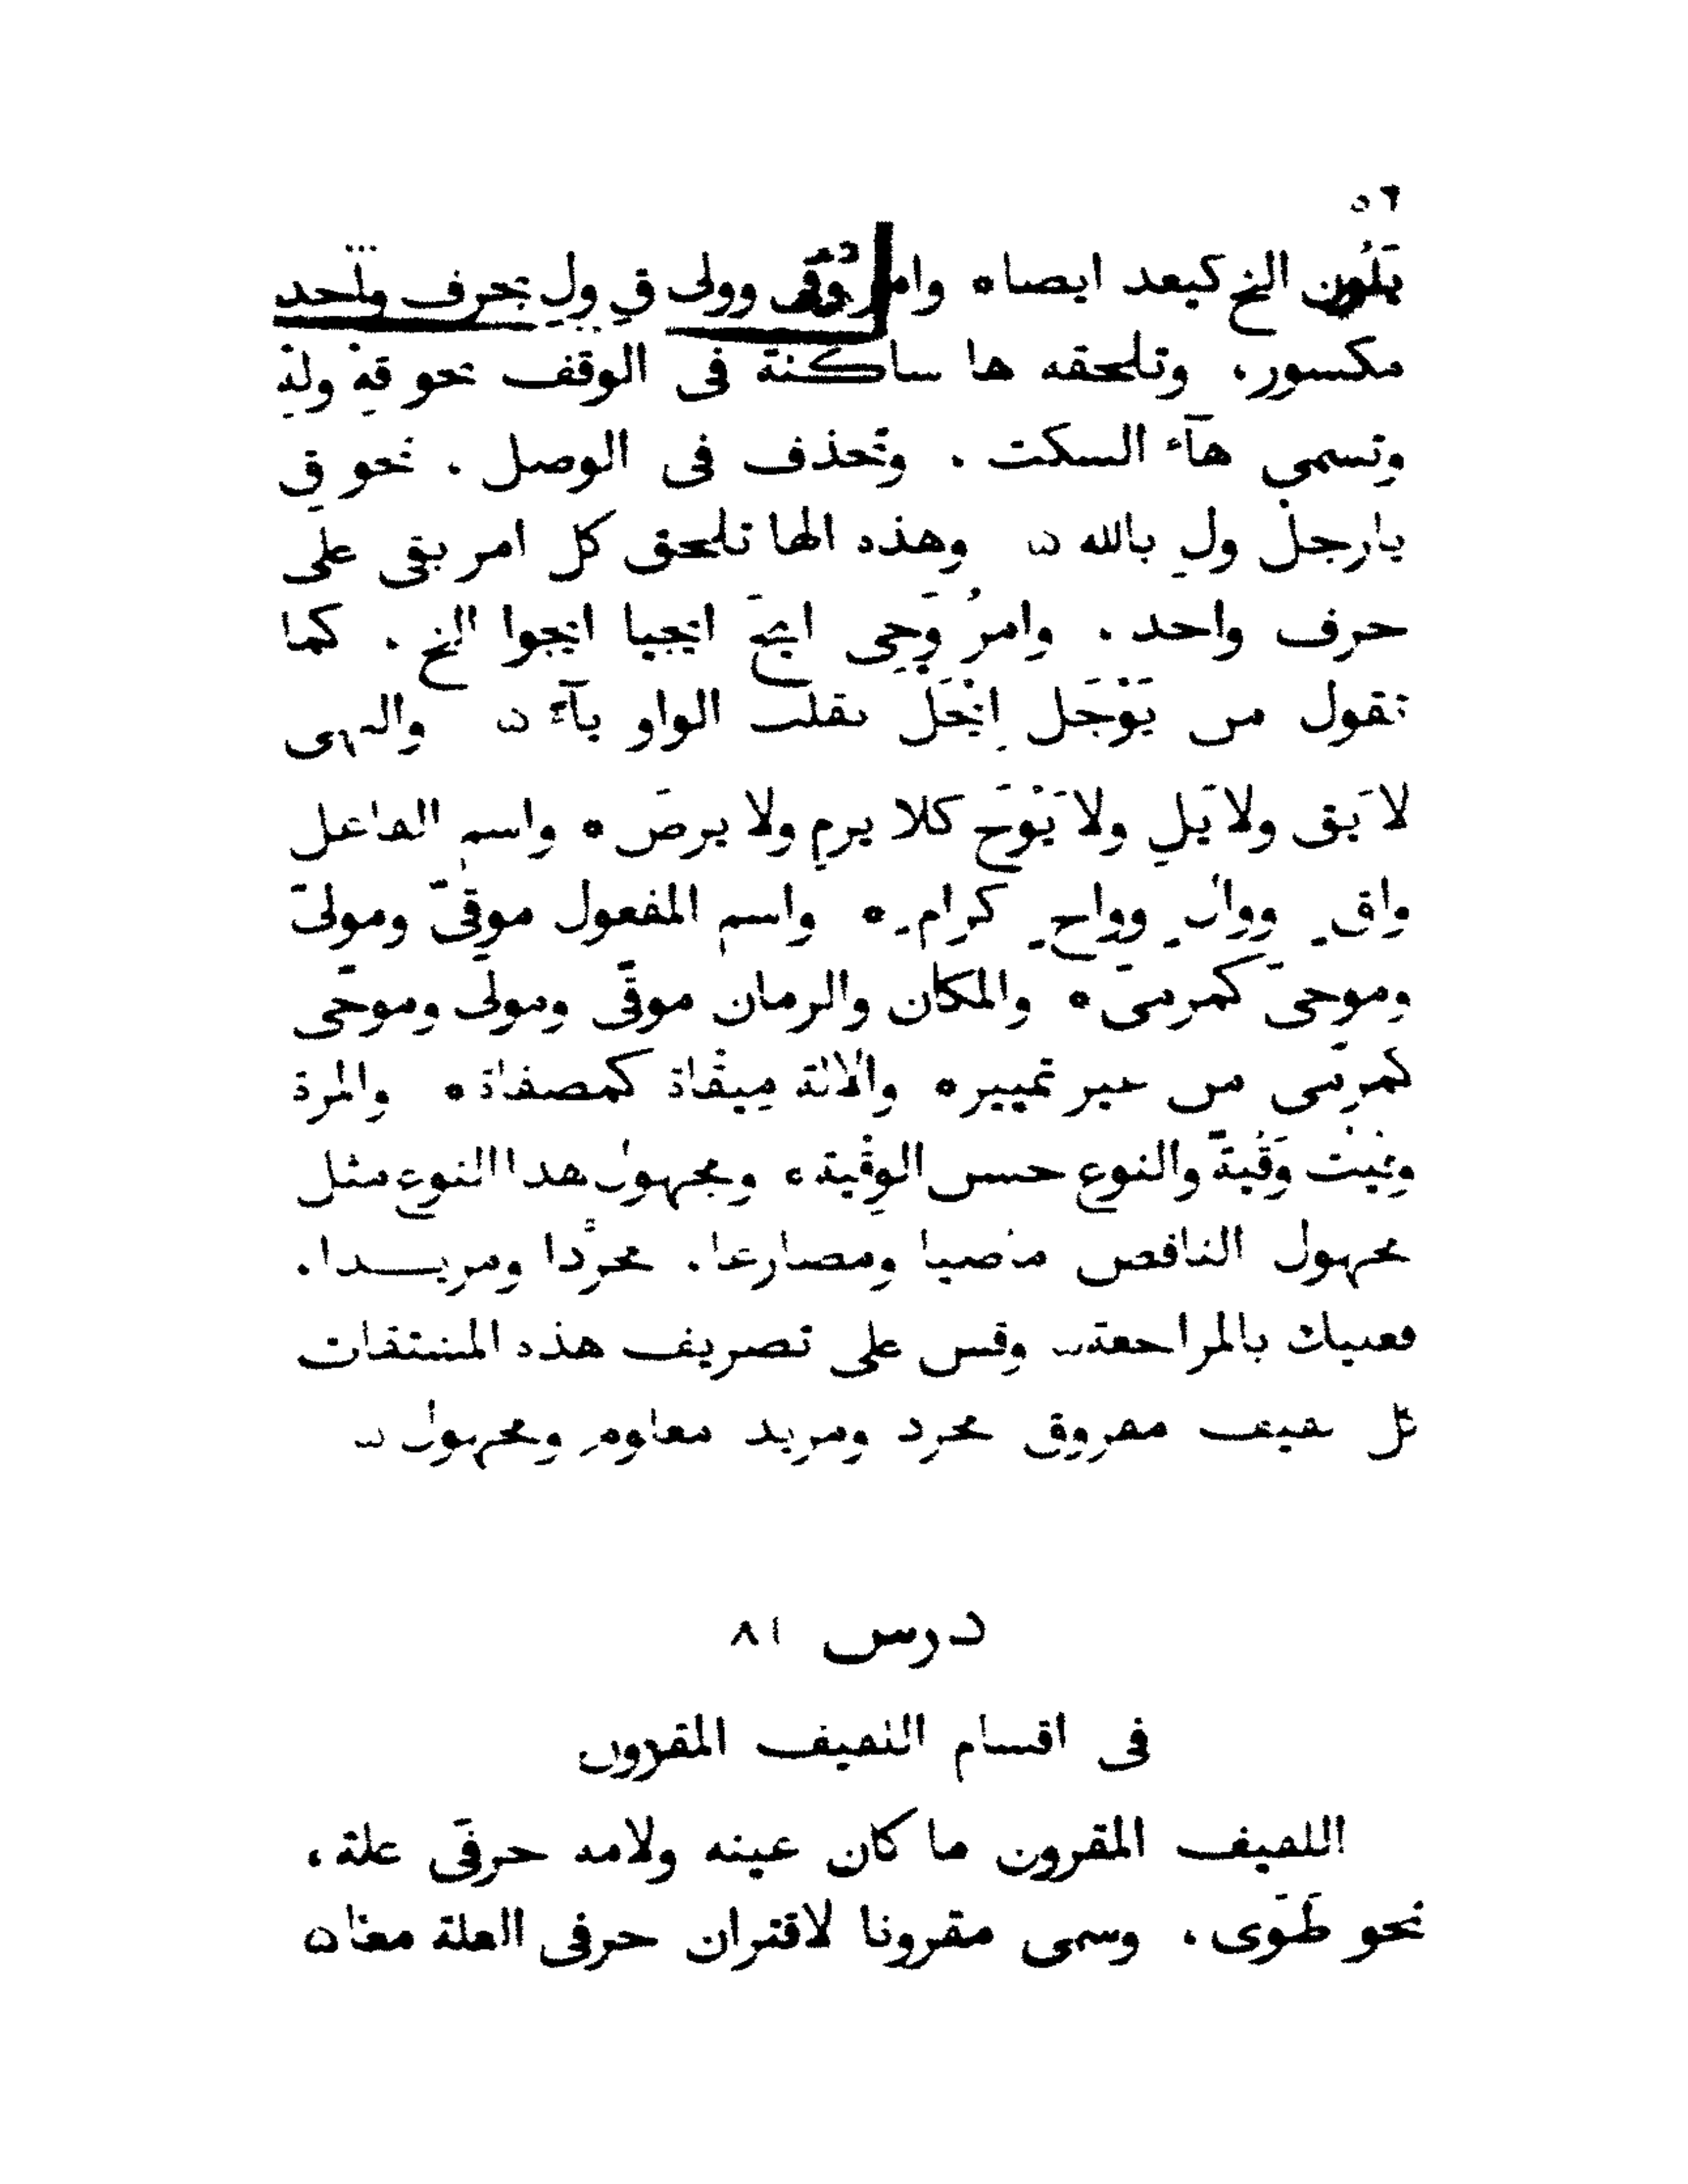 ٥٦
يَلُون الخ كيعد ايضا ٭ وامر وقى وولى قِ ولِ بحرف واحد
مكسور. وتلحقه ها ساكنة فى الوقف نحو قِهْ ولِهْ
وتسمى هآء السكت . وتُحذف فى الوصل . نحو قِ
يارجل ولِ بالله ۞ وهذه الها تلحق كل امر بقى على
حرف واحد . وامرُ وَجِى ايجَ ايجيا ايجوا الخ . كما
تقول من يَوْجَل اِيْجَلْ بقلب الواو يآءً ۞ والنهى
لا يَقِ ولا يَلِ ولا يَوْجَ كلا يرمِ ولا يرضَ ٭ واسم الفاعل
واقٍ ووالٍ وواجٍ كرامٍ ٭ واسم المفعول موقىّ ومولىّ
وموجىّ كمرمىّ ٭ والمكان والزمان موقًى ومولًى وموجًى
كمرمًى من غير تمييز ٭ والالة مِيقاة كمصفاة ٭ والمرة
وقيْت وَقْيةً والنوع حسن الوِقْية ٭ ومجهول هذا النوع مثل
مجهول الناقص ماضيا ومضارعا . مجرَّدا ومزيـدا .
فعليك بالمراجعة ۞ وقس على تصريف هذه المشتقات
كل لفيف مفروق مجرد ومزيد معلوم ومجهول ۞
درس ٨١
فى اقسام اللفيف المقرون
اللفيف المقرون ما كان عينه ولامه حرفَى علة ،
نحو طَوَى . وسمى مقرونا لاقتران حرفى العلة معًا ۞